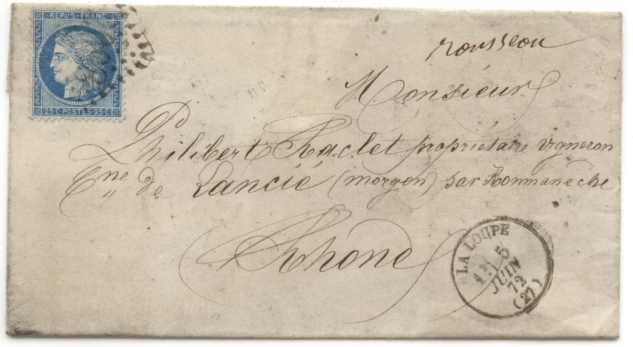 REPUB. FRANC.
25 C. POSTES 25 C.
rousseau
Monsieur
Philibert Raclet propriétaire vigneron
Cne de Lancié (morgon) par Romanèche
Rhône
LA LOUPE
5
JUIN
72
(27)